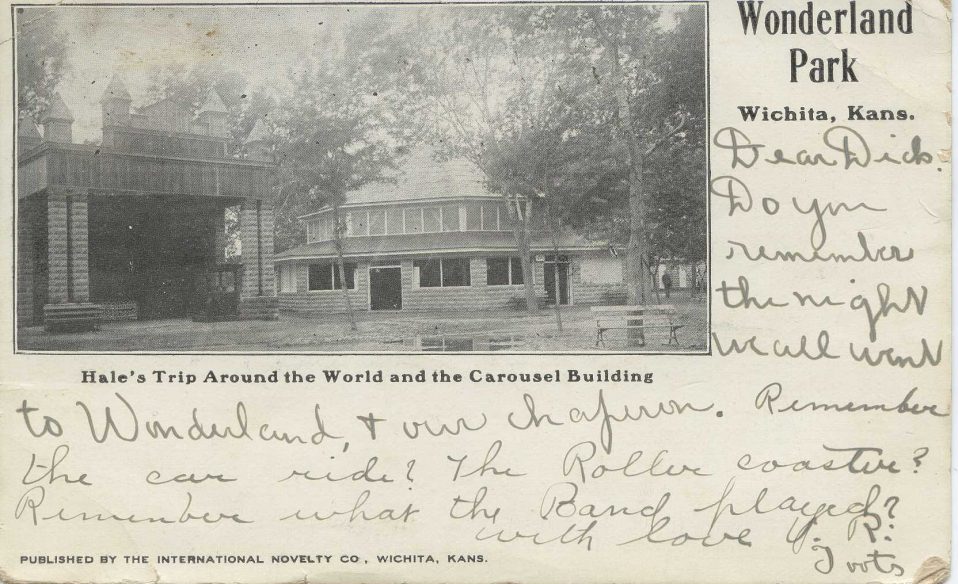 Wonderland
Park
Wichita, Kans.
Dear Dick.
Do you
remember
the night
we all went
Hale's Trip Around the World and the Carousel Building
to Wonderland, & our chaperon. Remember
the car ride? The Roller coaster?
Remember what the Band played?
with love
Toots
PUBLISHED BY THE INTERNATIONAL NOVELTY CO., WICHITA, KANS.